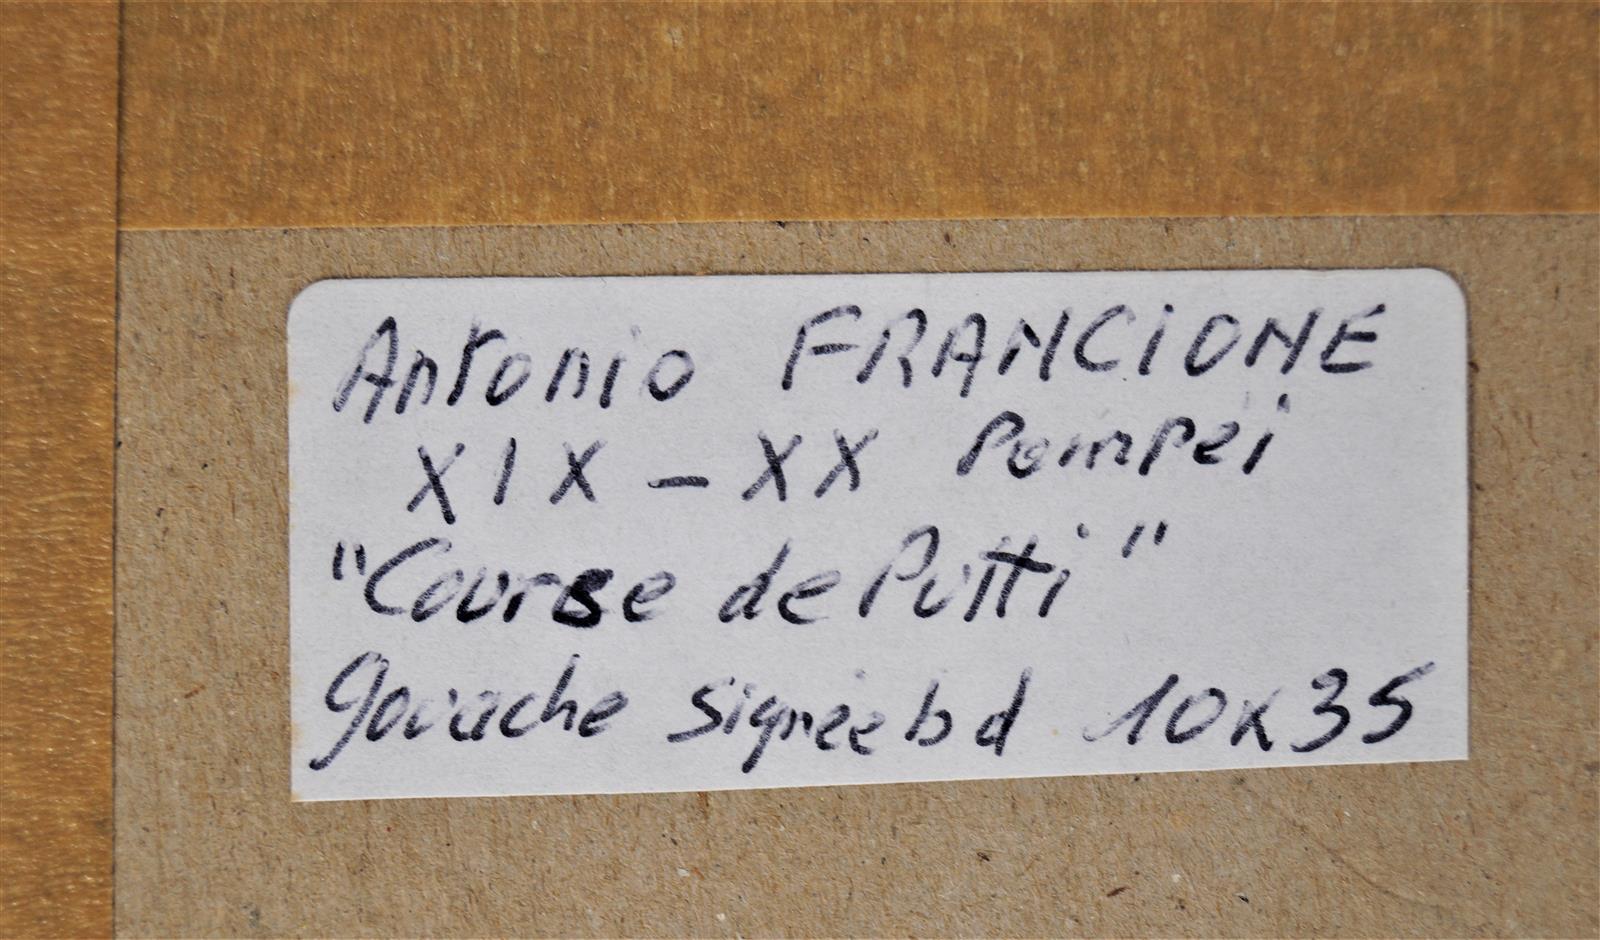 Antonio FRANCIONE
XIX - XX Pompei
"Course de Putti"
gouache signée bd 10x35